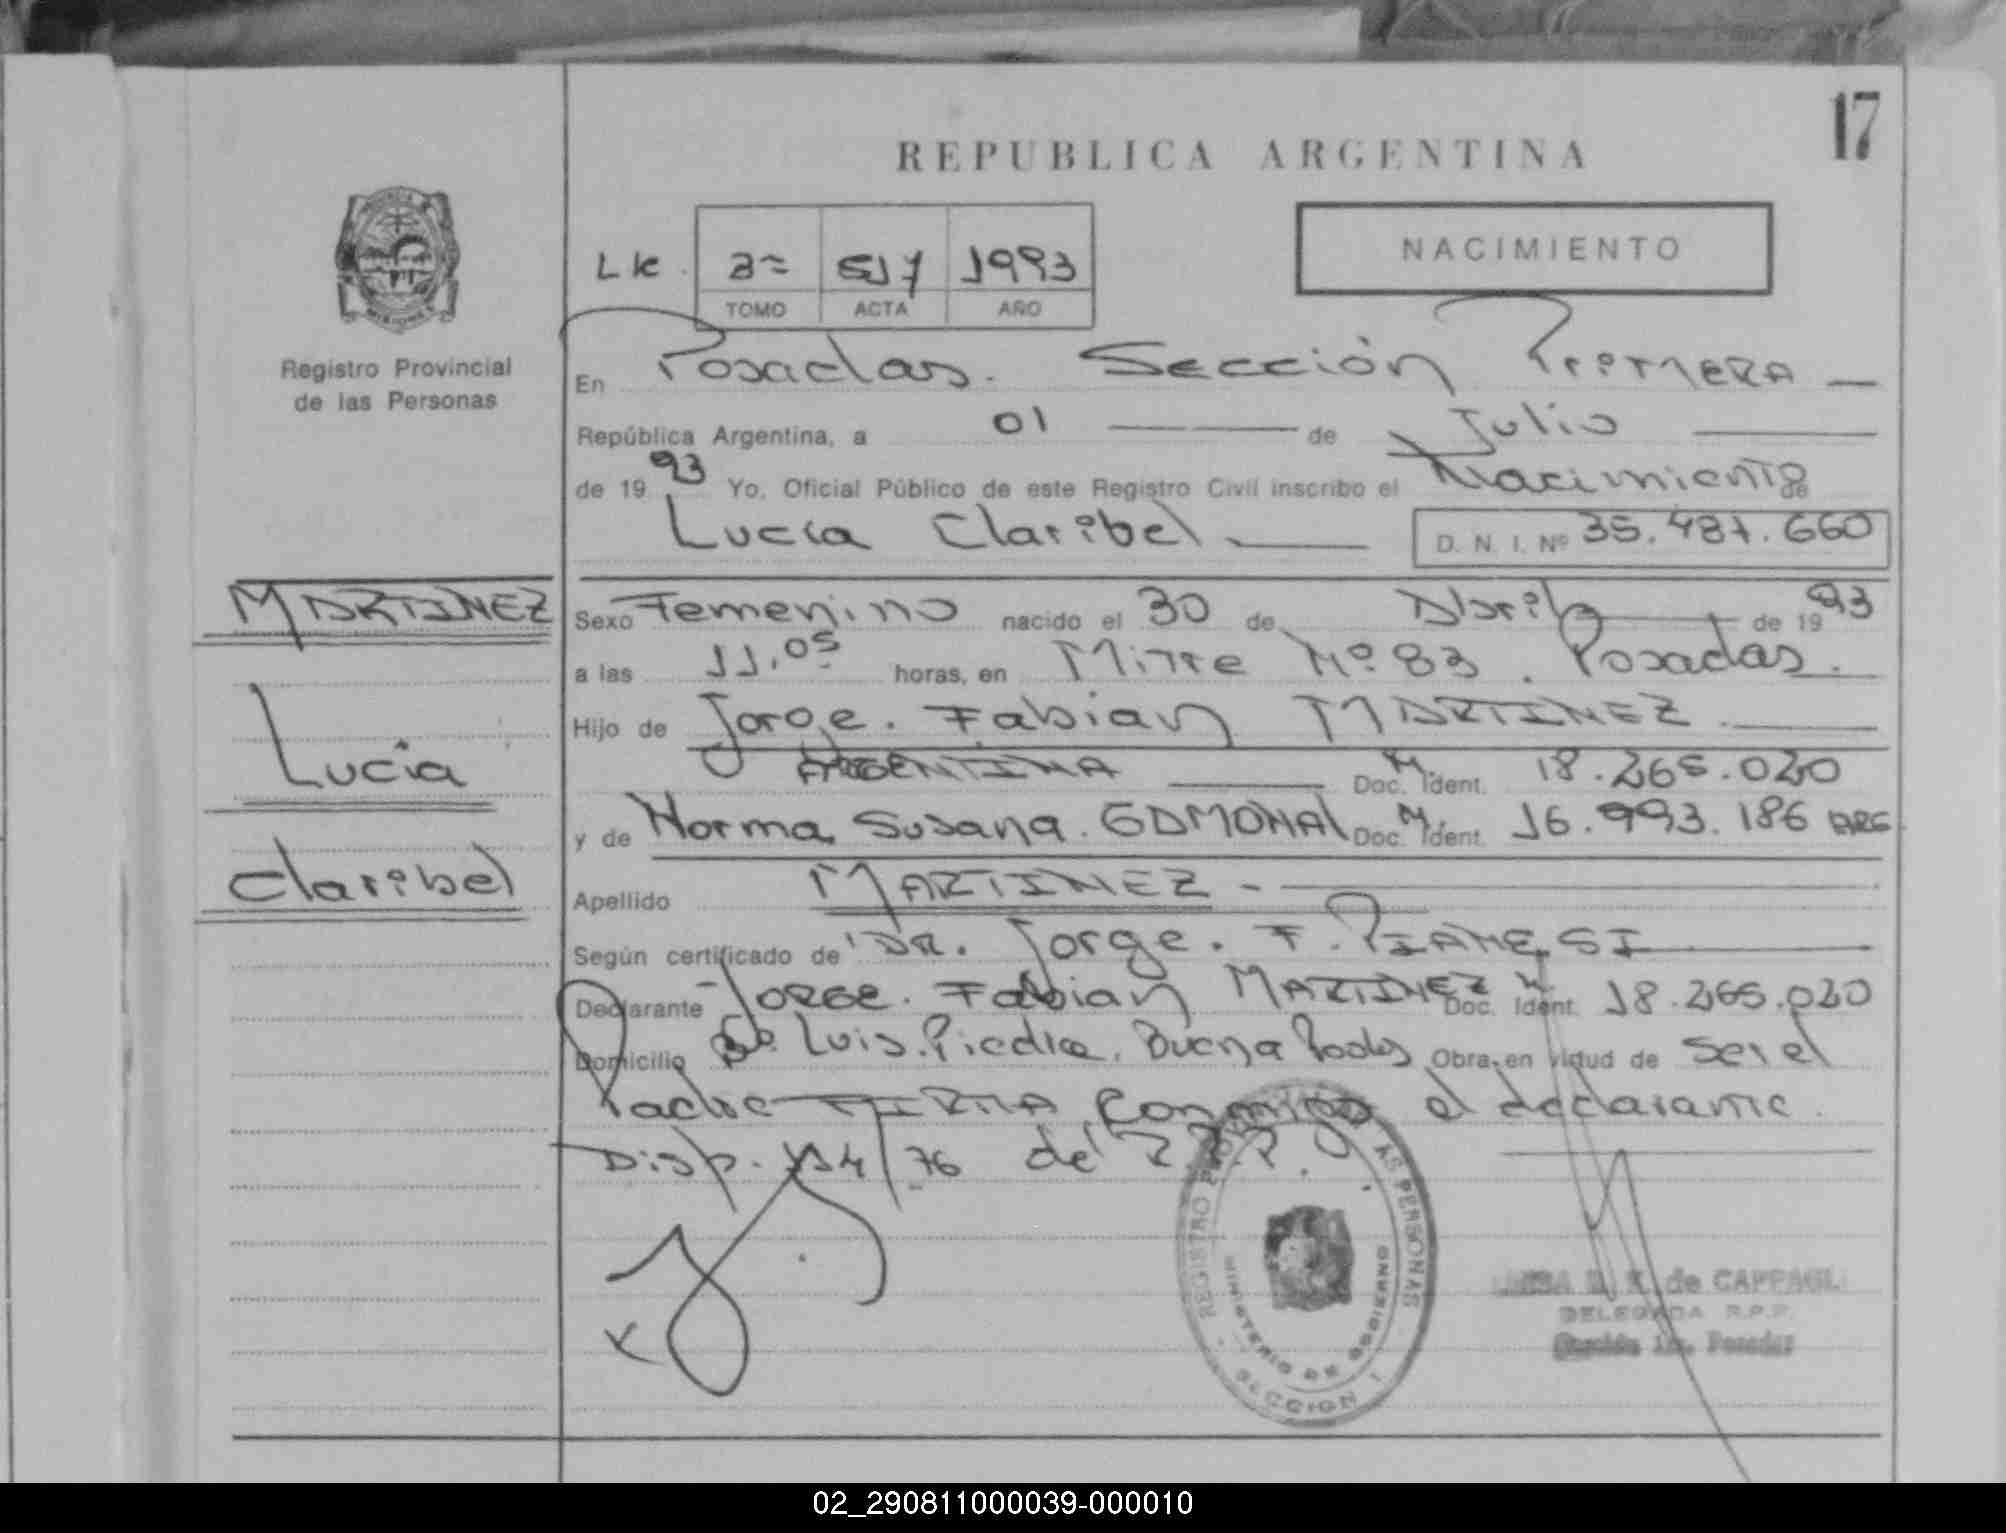 17
REPUBLICA ARGENTINA
NACIMIENTO
Lic. 2º 517 1993
TOMO ACTA AÑO
MISIONES
Registro Provincial
de las Personas
En Posadas. Sección Primera
República Argentina, a 01 de Julio
de 1993 Yo, Oficial Público de este Registro Civil inscribo el Nacimiento de
Lucía Claribel D. N. I. Nº 35.487.660
MARTINEZ
Lucía
Claribel
Sexo Femenino nacido el 30 de Abril de 1993
a las 11,05 horas, en Mitre Nº 83. Posadas.
Hijo de Jorge. Fabian MARTINEZ.
ARGENTINA Doc. M. Ident. 18.265.020
y de Norma Susana. Doc. M. Ident. 16.993.186 ARG
Apellido MARTINEZ.-
Según certificado de DR. Jorge. F. PIANESI
Declarante JORGE. Fabian MARTINEZ Doc. M. Ident. 18.265.020
Domicilio Bº Luis. Piedra. Buena Posadas Obra, en virtud de ser el
Padre FIRMA conmigo el declarante.
Disp. 154/76 de R.P.P.
REGISTRO PROVINCIAL DE LAS PERSONAS
MINISTERIO DE GOBIERNO
SECCION 1
de CAPPAGLI
DELEGADA R.P.P.
Sección 1ra. Posadas
02_290811000039-000010